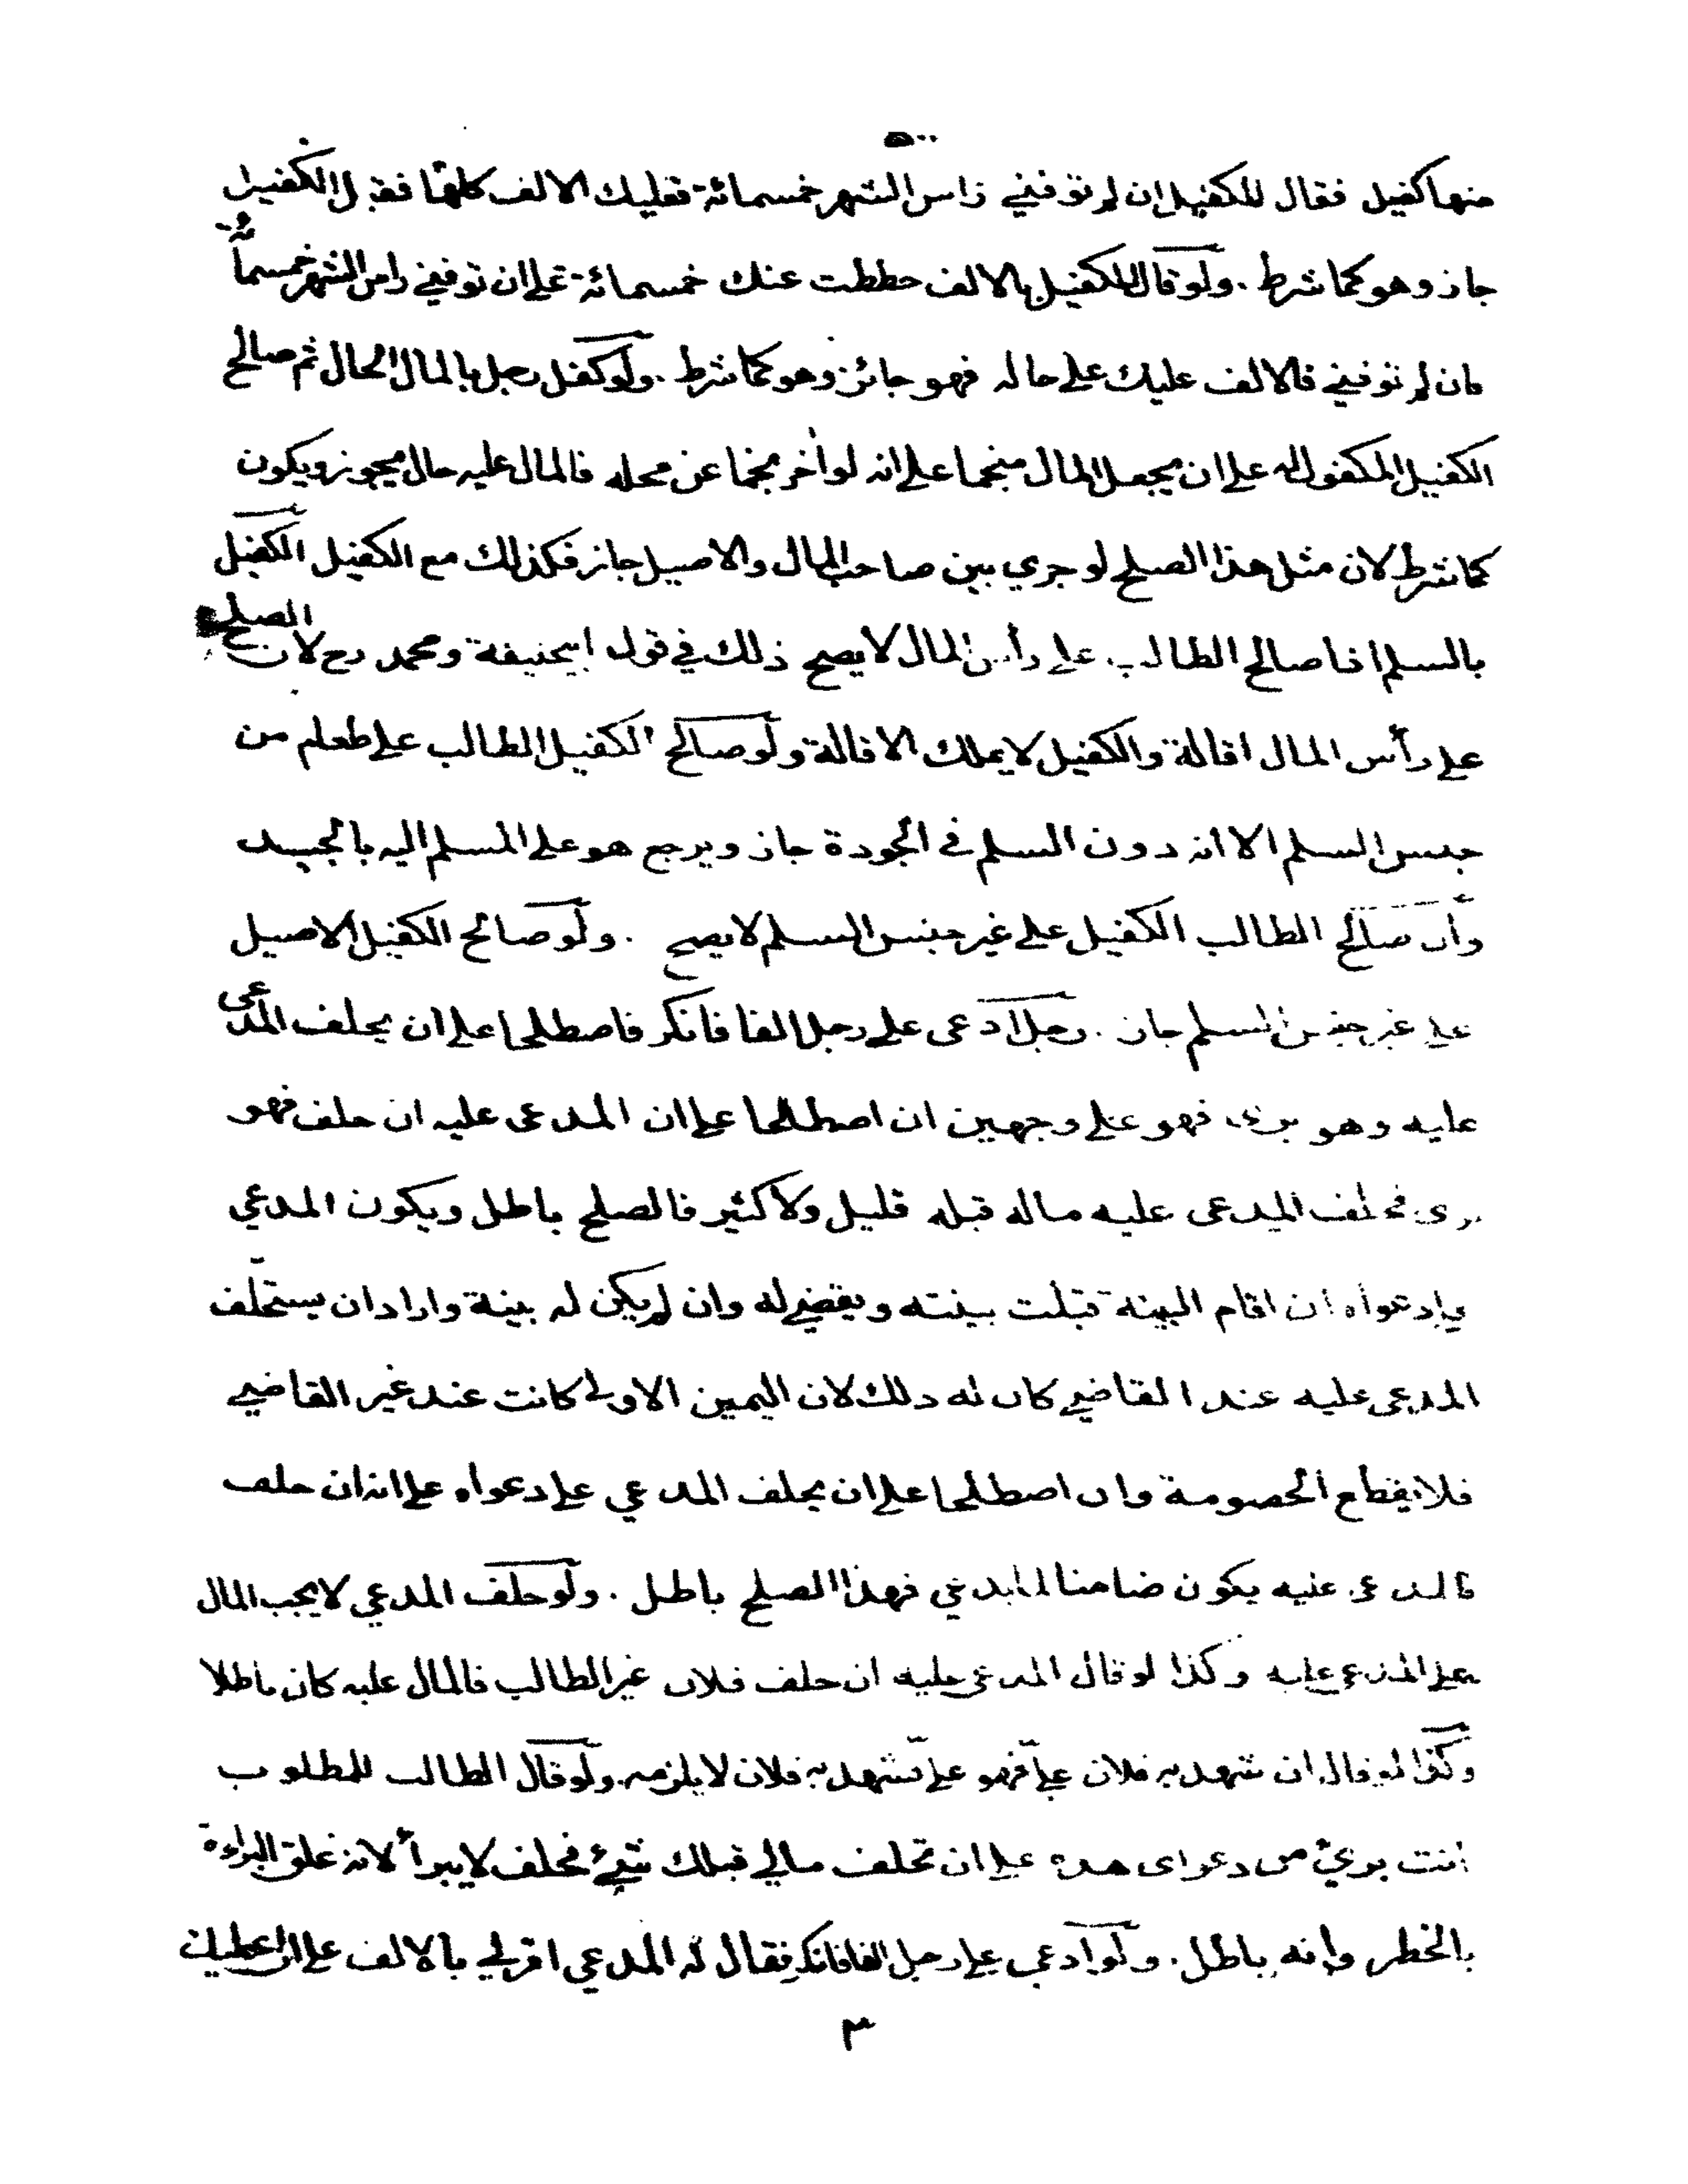 ٥٠٠
منها كفيل فقال للكفيل ان لم توفني راس الشهر خمسمائة فعليك الالف كلها فقبل الكفيل
جاز وهو كما شرط . ولو قال للكفيل بالالف حططت عنك خمسمائة على ان توفيني راس الشهر خمسمائة
فان لم توفني فالالف عليك على حاله فهو جائز وهو كما شرط . ولو كفل رجل بالمال الحال ثم صالح
الكفيل المكفول له على ان يجعل المال منجما على انه لو أخر نجما عن محله فالمال عليه حال يجوز ويكون
كما شرط لان مثل هذا الصلح لو جري بين صاحب المال والاصيل جاز فكذلك مع الكفيل الكفيل
بالسلم اذا صالح الطالب على رأس المال لا يصح ذلك في قول ابيحنيفة ومحمد رح لان الصلح
على رأس المال اقالة والكفيل لا يملك الاقالة ولو صالح الكفيل الطالب على طعام من
جنس السلم الا انه دون السلم في الجودة جاز ويرجع هو على المسلم اليه بالجيد
وان صالح الطالب الكفيل على غير جنس السلم لا يصح . ولو صالح الكفيل الاصيل
على غير جنس السلم جاز . رجل ادعى على رجل الفا فانكر فاصطلحا على ان يحلف المدعى
عليه وهو برى فهو على وجهين ان اصطلحا على ان المدعى عليه ان حلف فهو
برى فحلف المدعى عليه ماله قبله قليل ولا كثير فالصلح باطل ويكون المدعي
على دعواه ان اقام البينة قبلت بينته ويقضي له وان لم يكن له بينة واراد ان يستحلف
المدعى عليه عند القاضي كان له ذلك لان اليمين الاولى كانت عند غير القاضي
فلا يقطع الخصومة وان اصطلحا على ان يحلف المدعي على دعواه على انه ان حلف
فالمدعى عليه يكون ضامنا لما يدعي فهذا الصلح باطل . ولو حلف المدعي لا يجب المال
على المدعى عليه وكذا لو قال المدعى عليه ان حلف فلان غير الطالب فالمال عليه كان باطلا
وكذا لو قال ان شهد به فلان علي فهو علي شهد به فلان لا يلزمه . ولو قال الطالب للمطلوب
انت بريء من دعواى هذه على ان تحلف مالي قبلك شيء فحلف لا يبرأ لانه علق البراءة
بالخطر وانه باطل . ولو ادعى على رجل الفا فانكر فقال له المدعي اقر لي بالالف على ان اعطيك
٣